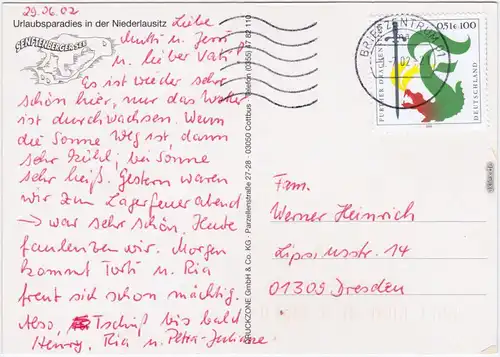 29.06.02
Urlaubsparadies in der Niederlausitz
SENFTENBERGER SEE
Liebe
Mutti u. Jens
u. lieber Vati,
Es ist wieder sehr
schön hier, nur das Wetter
ist durchwachsen. Wenn
die Sonne weg ist, dann
sehr kühl, bei Sonne
sehr heiß. Gestern waren
wir zum Lagerfeuerabend
→ war sehr schön. Heute
faulenzen wir. Morgen
kommt Torti u. Ria
freut sich schon mächtig.
Also, Tschüß bis bald
Henry, Ria u. Petra-Juliane
DRUCKZONE GmbH & Co. KG · Parzellenstraße 27-28 · 03050 Cottbus · Telefon (0355) 47 82 110
BRIEFZENTRUM 01
02
0,51€ 100
FURTHER DRACHENSTICH
DEUTSCHLAND
Fam.
Werner Heinrich
Lipsiusstr. 14
01309 Dresden